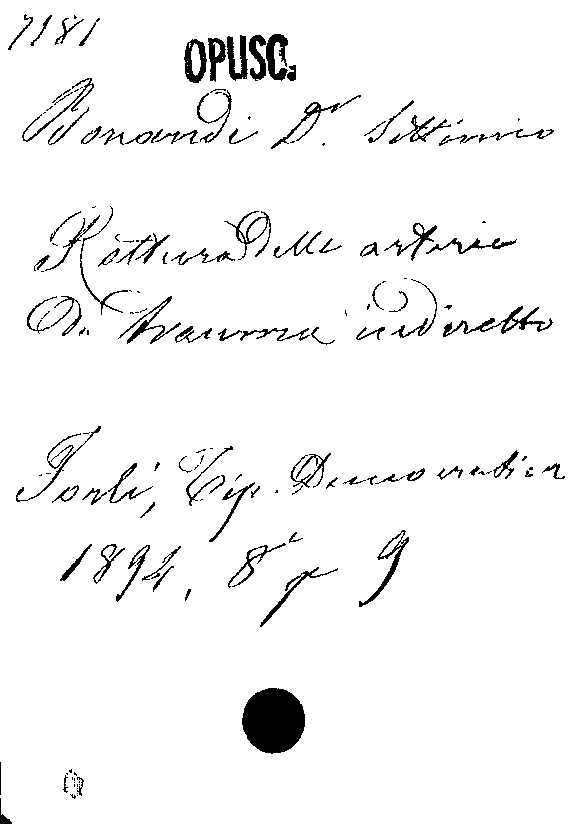 7181
OPUSC.
Bonandi Dr. Settimio
Rottura delle arterie
Da trauma indiretto
Forlì, Tip. Democratica
1894, 8° p 9